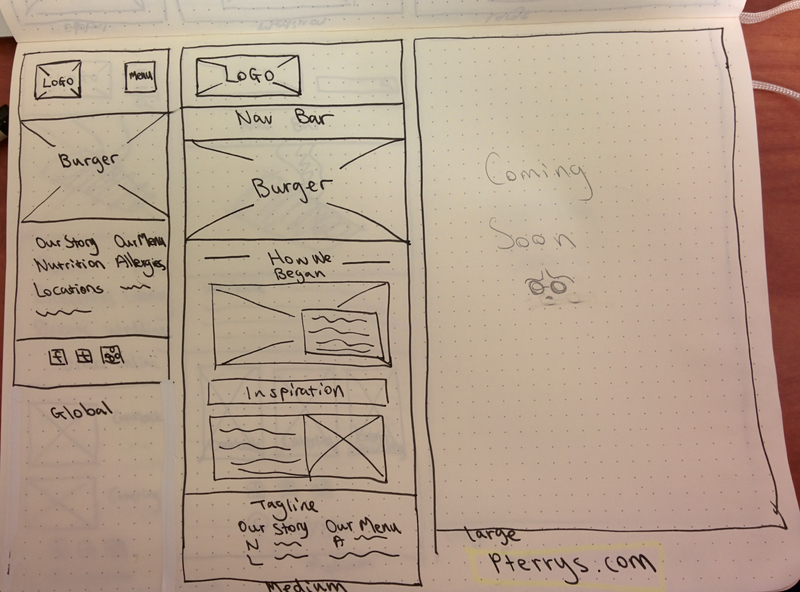 LOGO
Menu
Burger
Our Story Our Menu
Nutrition Allergies
Locations
f
Global
LOGO
Nav Bar
Burger
How We
Began
Inspiration
Tagline
Our Story Our Menu
N A
L
Medium
Coming
Soon
large
Pterrys.com